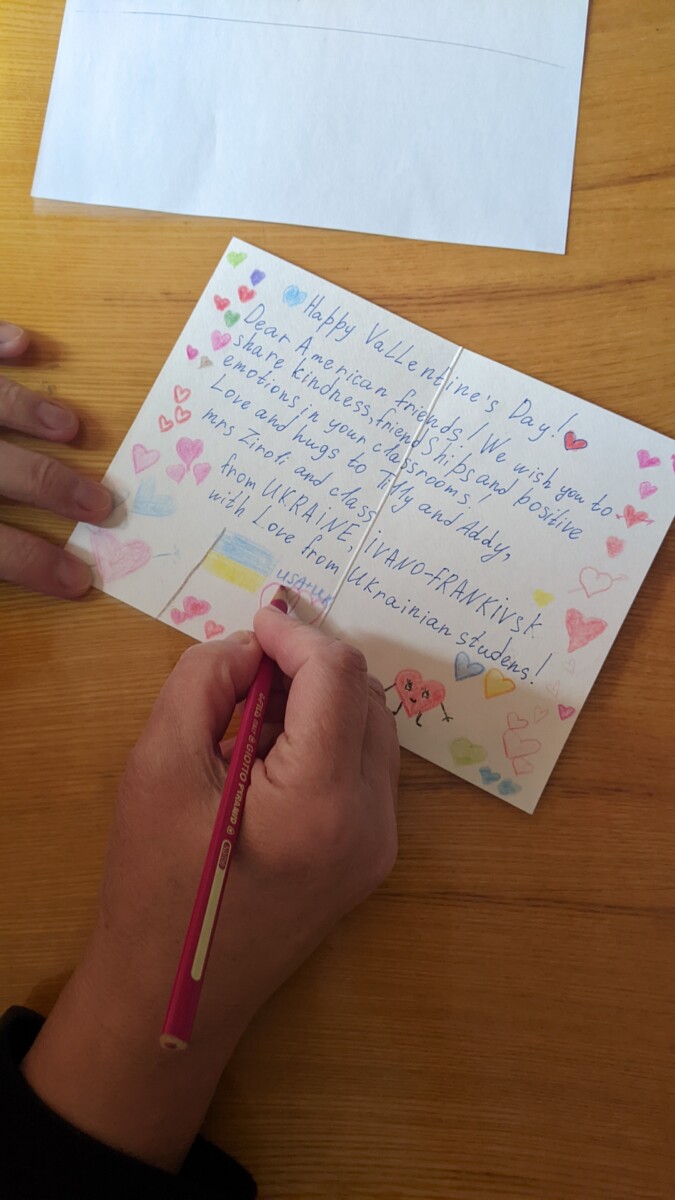 Happy VaLLentine's Day!
Dear American friends! We wish you to
share kindness, friendships and positive
emotions in your classrooms!
Love and hugs to Tilly and Addy,
mrs Ziroli and class
from UKRAINE, iVANO-FRANKiVSK
with Love from Ukrainian studens!
USA+UK
GIOTTO